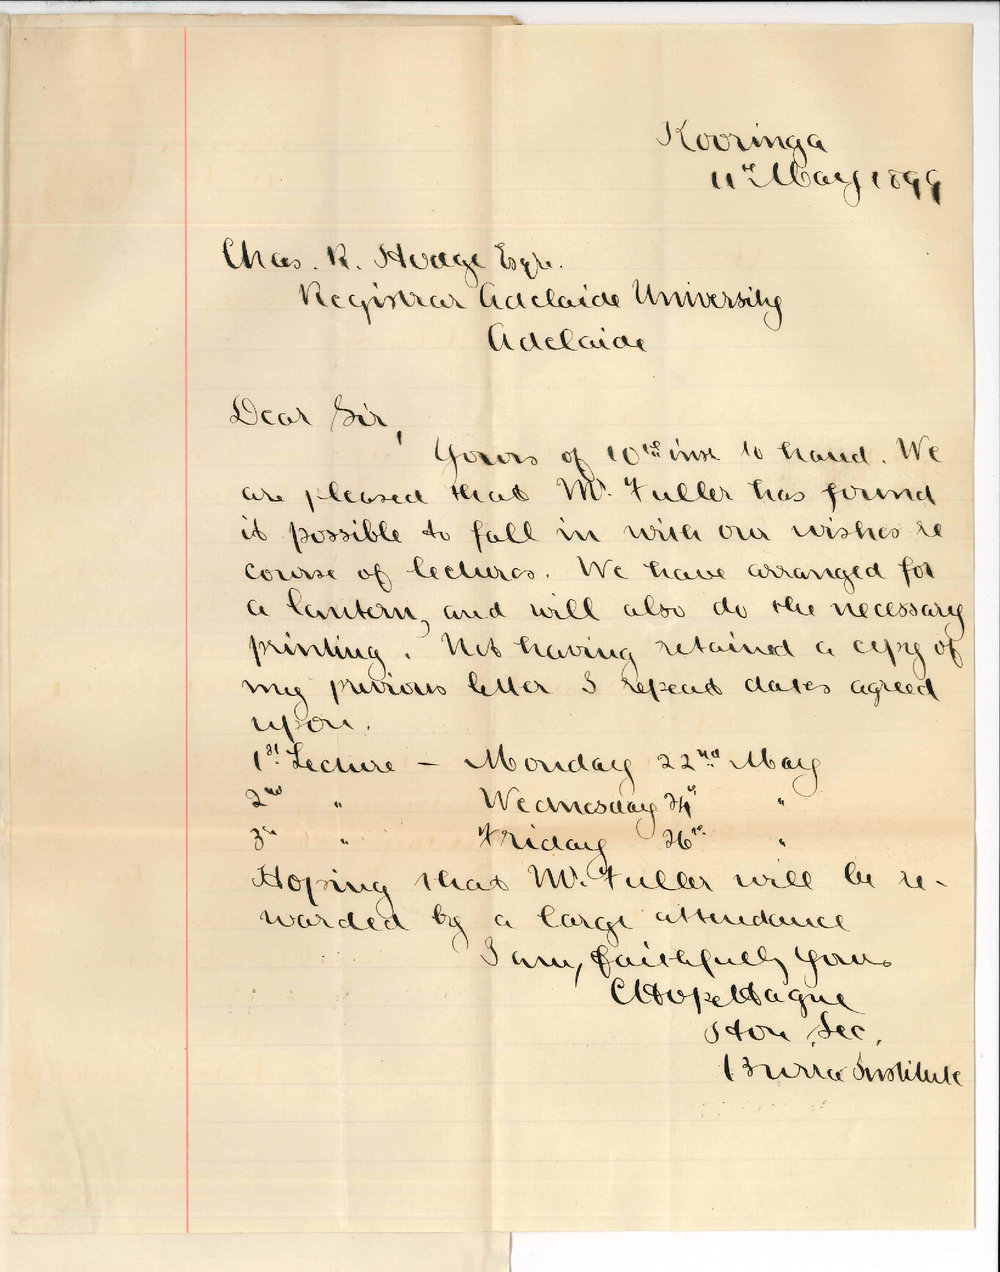 Kooringa
11th May 1899
Chas. R. Hodge Esqre.
Registrar Adelaide University
Adelaide
Dear Sir,
Yours of 10th inst to hand. We
are pleased that Mr. Fuller has found
it possible to fall in with our wishes re
course of lectures. We have arranged for
a lantern, and will also do the necessary
printing. Not having retained a copy of
my previous letter I repeat dates agreed
upon.
1st Lecture – Monday 22nd May
2nd " Wednesday 24th "
3rd " Friday 26th "
Hoping that Mr. Fuller will be re-
warded by a large attendance
I am, faithfully yours
C Hope Hague
Hon Sec.
Burra Institute